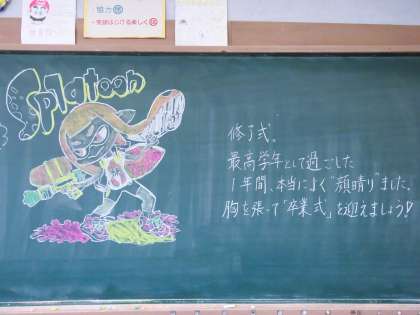 協力
発想はじける楽しく
Splatoon
修了式。
最高学年として過ごした
1年間、本当によく"顔晴り"ました。
胸を張って「卒業式」を迎えましょう♡